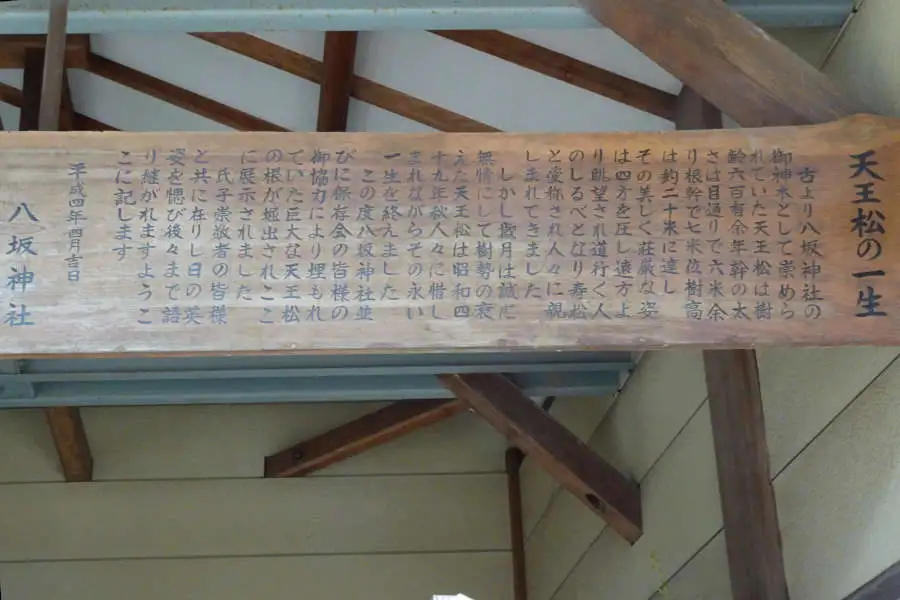 天王松の一生
古より八坂神社の
御神木として崇めら
れていた天王松は樹
齢六百有余年幹の太
さは目通りで六米余
り根幹で七米位樹高
は約二十米に達し
その美しく荘厳な姿
は四方を圧し遠方よ
り眺望され道行く人
のしるべとなり寿松
と愛称され人々に親
しまれてきました
しかし歳月は誠に
無情にして樹勢の衰
えた天王松は昭和四
十九年秋人々に惜し
まれながらその永い
一生を終えました
この度八坂神社並
びに保存会の皆様の
御協力により埋もれ
ていた巨大な天王松
の根が掘出されここ
に展示されました
氏子崇敬者の皆様
と共に在りし日の英
姿を偲び後々まで語
り継がれますようこ
こに記します
平成四年四月吉日
八坂神社